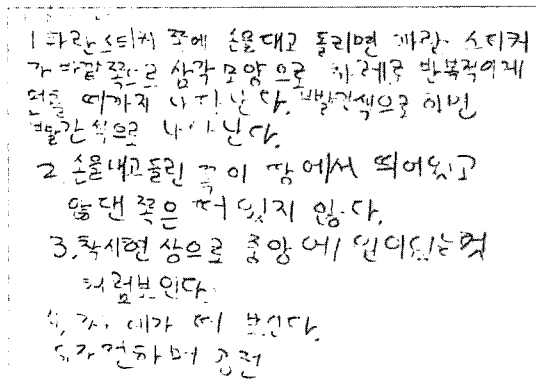 1 파란 스티커 쪽에 손을대고 돌리면 파란 스티커
가 바깥쪽으로 삼각 모양으로 차례로 반복적이게
멈출 때까지 나타난다. 빨간색으로 하면
빨간 색으로 나타난다.
2. 손을대고돌린 쪽이 땅에서 띄어있고
않댄 쪽은 떠 있지 않다.
3. 착시현상으로 중앙에 원이있는것
처럼보인다.
4. 보인다.
5. 자전하며 공전